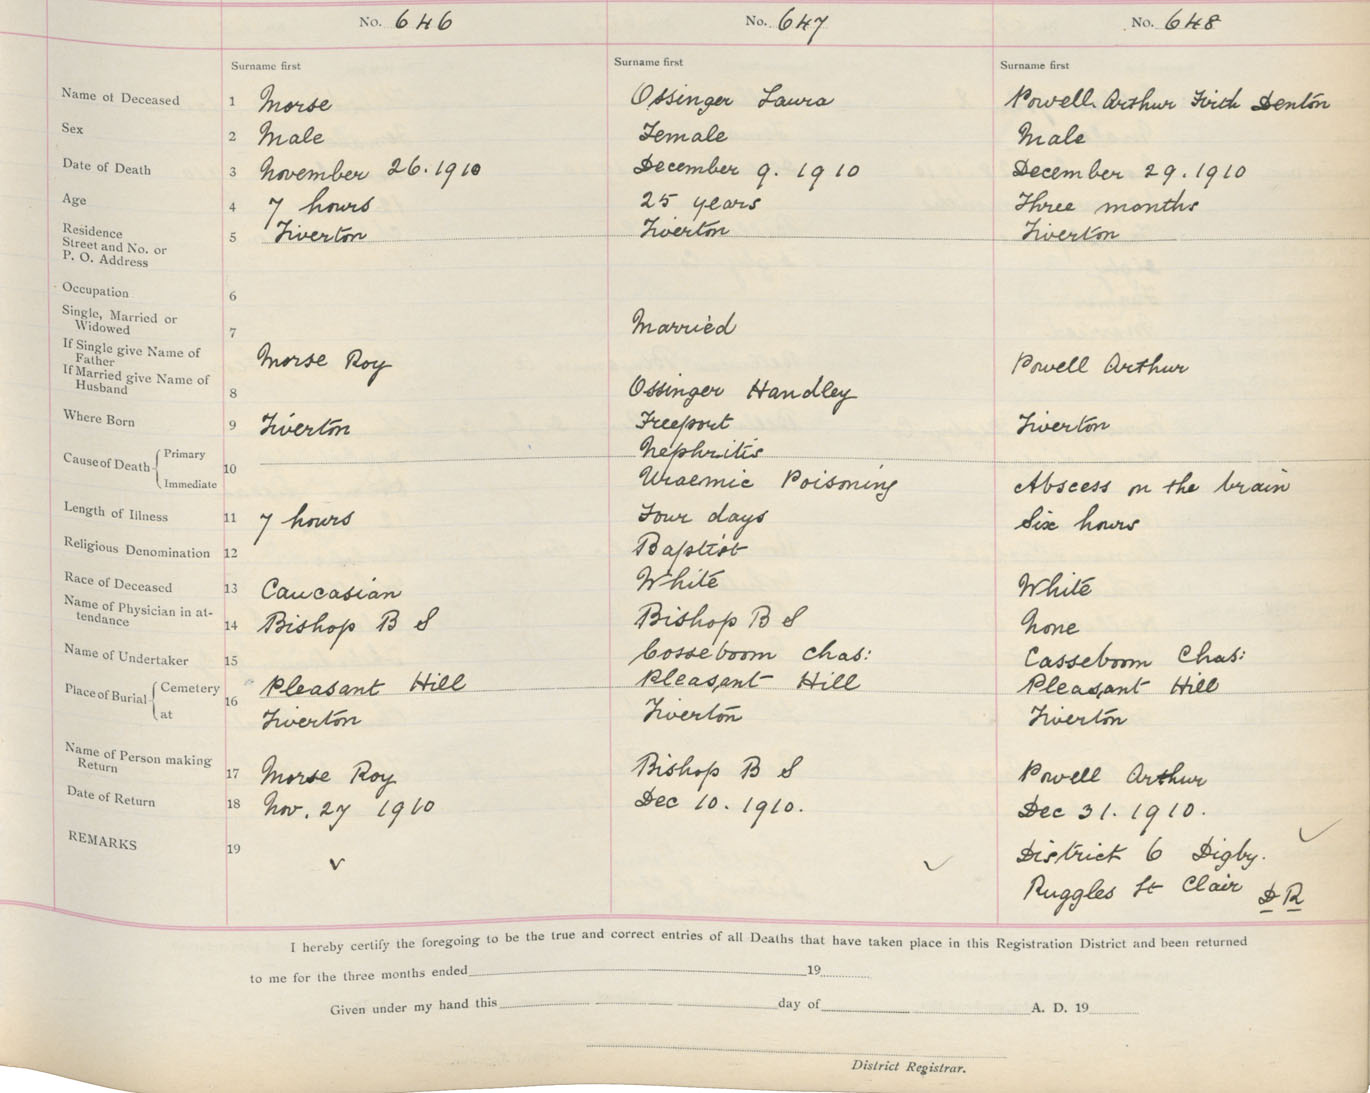 No. 646 No. 647 No. 648
Surname first Surname first Surname first
Name of Deceased 1 Morse Ossinger Laura Powell Arthur Firth Denton
Sex 2 Male Female Male
Date of Death 3 November 26. 1910 December 9. 1910 December 29. 1910
Age 4 7 hours 25 years Three months
Residence
Street and No. or
P. O. Address 5 Tiverton Tiverton Tiverton
Occupation 6
Single, Married or
Widowed 7 Married
If Single give Name of
Father Morse Roy Powell Arthur
If Married give Name of
Husband 8 Ossinger Handley
Where Born 9 Tiverton Freeport Tiverton
Cause of Death 10 Primary Nephritis
Immediate Uraemic Poisoning Abscess on the brain
Length of Illness 11 7 hours Four days Six hours
Religious Denomination 12 Baptist
Race of Deceased 13 Caucasian White White
Name of Physician in at-
tendance 14 Bishop B S Bishop B S None
Name of Undertaker 15 Cosseboom Chas: Casseboom Chas:
Place of Burial 16 Cemetery Pleasant Hill Pleasant Hill Pleasant Hill
at Tiverton Tiverton Tiverton
Name of Person making
Return 17 Morse Roy Bishop B S Powell Arthur
Date of Return 18 Nov. 27 1910 Dec 10. 1910. Dec 31. 1910.
REMARKS 19 District 6 Digby.
Ruggles St Clair D R
I hereby certify the foregoing to be the true and correct entries of all Deaths that have taken place in this Registration District and been returned
to me for the three months ended 19
Given under my hand this day of A. D. 19
District Registrar.